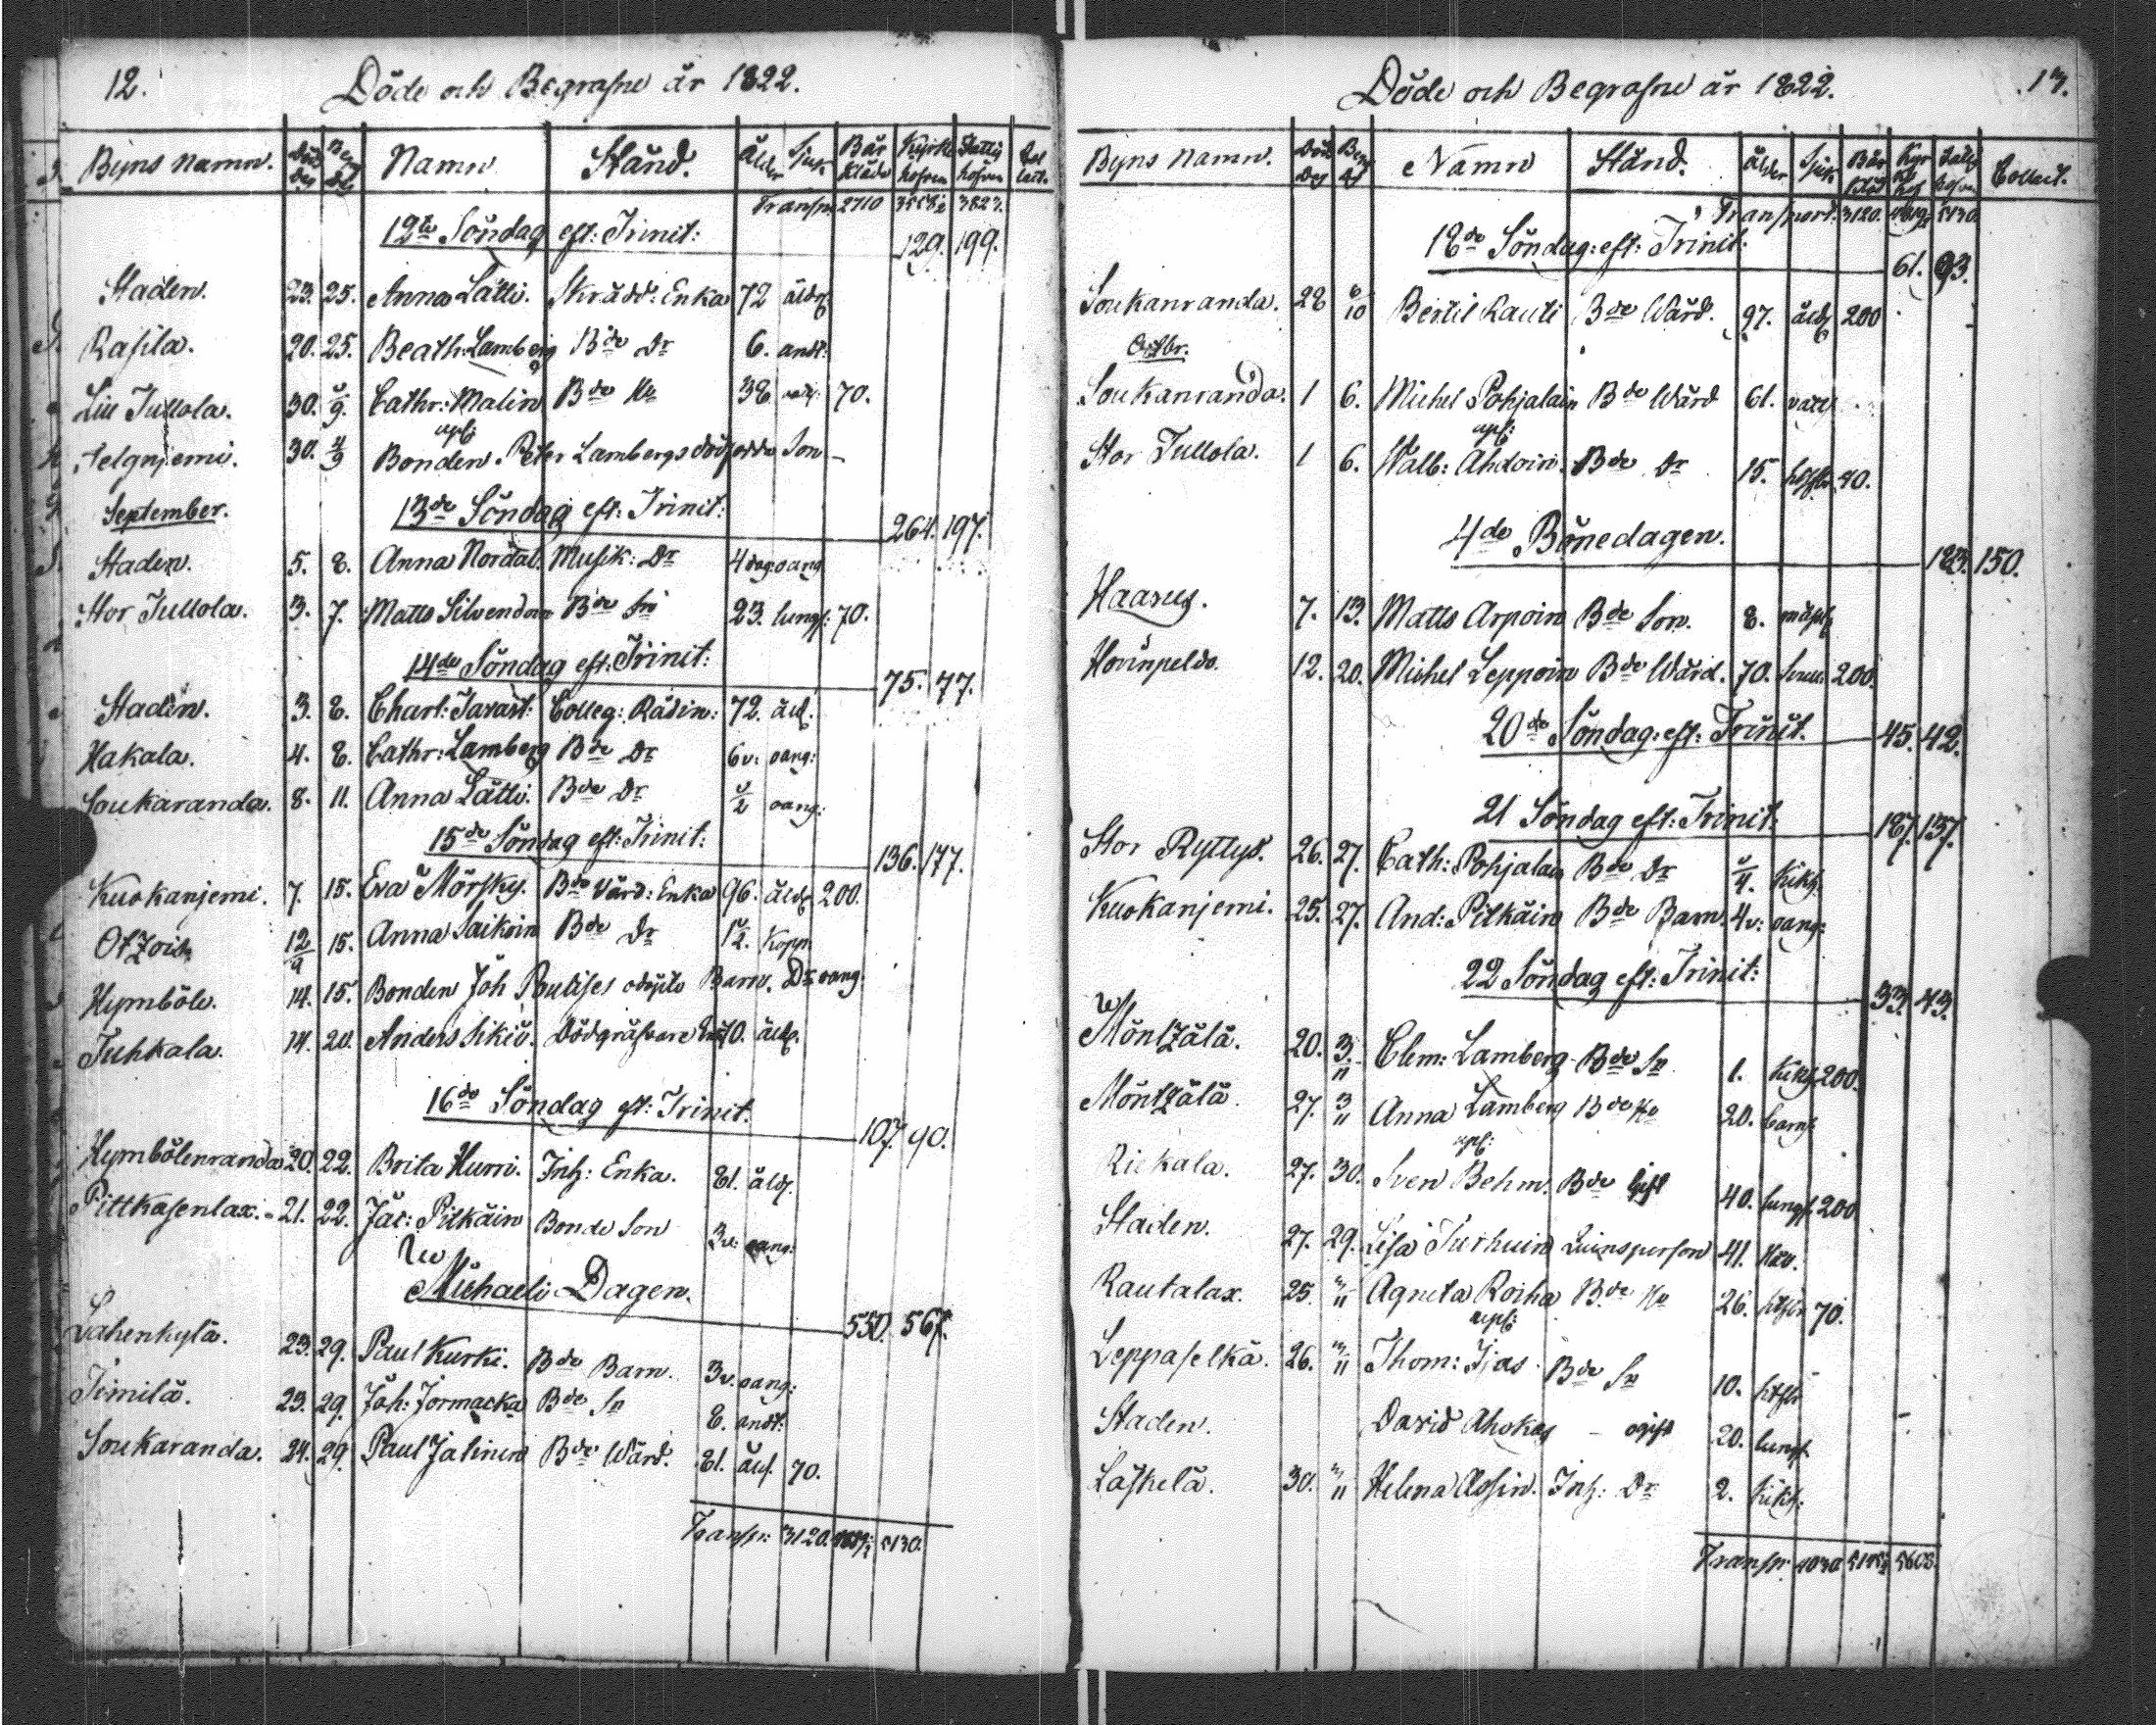 12. Döde och Begrafne år 1822.
Byns Namn. Död Dag Begr Dag Namn Stånd. Ålder Sjuk. Bår kläde Kyrk håfven Fattig håfven Collect.
Transp: 2710 3823.
12te Söndag eft: Trinit: 129. 199.
Staden. 23. 25. Anna Lätti. Skrädd: Enka 72 åld:
Rasila. 20. 25. Beath: Lamberg Bde Dr 6. andt:
Lill Tullola. 30. Cathr: Malin Bde Hu 38 70.
Telgnjemi. 30. 4/9 Bonden Peter Lambergs dödfödde Son –
September. 13de Söndag eft: Trinit: 264. 197.
Staden. 5. 8. Anna Nordal. Musik: Dr 4 dag: oang:
Stor Tullola. 3. 7. Matts Silvendoin Bde Sn 23. lungs: 70.
14de Söndag eft: Trinit: 75. 77.
Staden. 3. 8. Charl: Tavast: Colleg: Rådin: 72. åld.
Hakala. 4. 8. Cathr: Lamberg Bde Dr 6 v: oang:
Soukaranda. 8. 11. Anna Lätti. Bde Dr oang:
15de Söndag eft: Trinit: 136. 177.
Kuokanjemi. 7. 15. Eva Mörsky. Bde Värd: Enka 96. åld: 200.
Otzois 12/9 15. Anna Saikoin Bde Dr Kopp.
Hymböle. 14. 15. Bonden Joh Poutises odöpte Barn. Dr oang.
Tuhkala. 14. 20. Anders Hikiö. Dödgräfvare 70. åld.
16de Söndag eft: Trinit: 107. 90.
Hymbölenranda 20. 22. Brita Hurri. Inh: Enka. 81. åld.
Pittkasenlax. 21. 22. Jac: Pitkäin Bonde Son 3 v: oang:
Michaeli Dagen. 550. 567.
Lahenkylä. 23. 29. Paul Kurki. Bde Barn. 3 v. oang:
Tenilä. 23. 29. Joh: Jormacka Bde Sn 8. andt:
Soukaranda. 24. 29. Paul Jalinen Bde Wärd. 81. åld. 70.
Transp: 3120. 5130.
Döde och Begrafne år 1822. 13.
Byns Namn. Död Dag Begr Dag Namn Stånd. Ålder Sjuk Bår kläd Kyrk håf Fattig håfven Collect.
Transport: 3120. 5130.
18de Söndag: eft: Trinit: 61. 93.
Soukanranda. 28 6/10 Bertil Rauti Bde Wärd. 97. åld 200
Octbr.
Soukanranda. 1 6. Michel Pohjalain Bde Wärd 61.
Stor Tullola. 1 6. Walb: Ahdoin. Bde Dr 15. 40.
4de Bönedagen. 183. 150.
Haarus. 7. 13. Matts Arpoin Bde Son. 8. mässl
Hovinpeldo. 12. 20. Michel Leppoin Bde Wärd. 70. 200.
20de Söndag: eft: Trinit. 45. 42.
21 Söndag eft: Trinit: 187. 137.
Stor Ryttys. 26. 27. Cath: Pohjalain Bde Dr Kikh:
Kuokanjemi. 25. 27. And: Pitkäin Bde Barn 4 v: oang:
22 Söndag eft: Trinit: 33. 43.
Möntzälä. 20. 3/11 Clem: Lamberg Bde Sn 1. Kikh 200.
Möntzälä. 27. 3/11 Anna Lamberg Bde Hu 20. barns:
Riekala. 27. 30. Sven Behm. Bde gift 40. lungs: 200
Staden. 27. 29. Lisa Turhuin 41.
Rautalax. 25. 3/11 Agneta Roiha Bde Hu 26. 70.
Leppäselkä. 26. 3/11 Thom: Ijas. Bde Sn 10.
Staden. David Ahokas – ogift 20. lungs.
Läskelä. 30. 3/11 Helena Assin. Inh: Dr 2. Kikh:
Transp. 4030 5608.